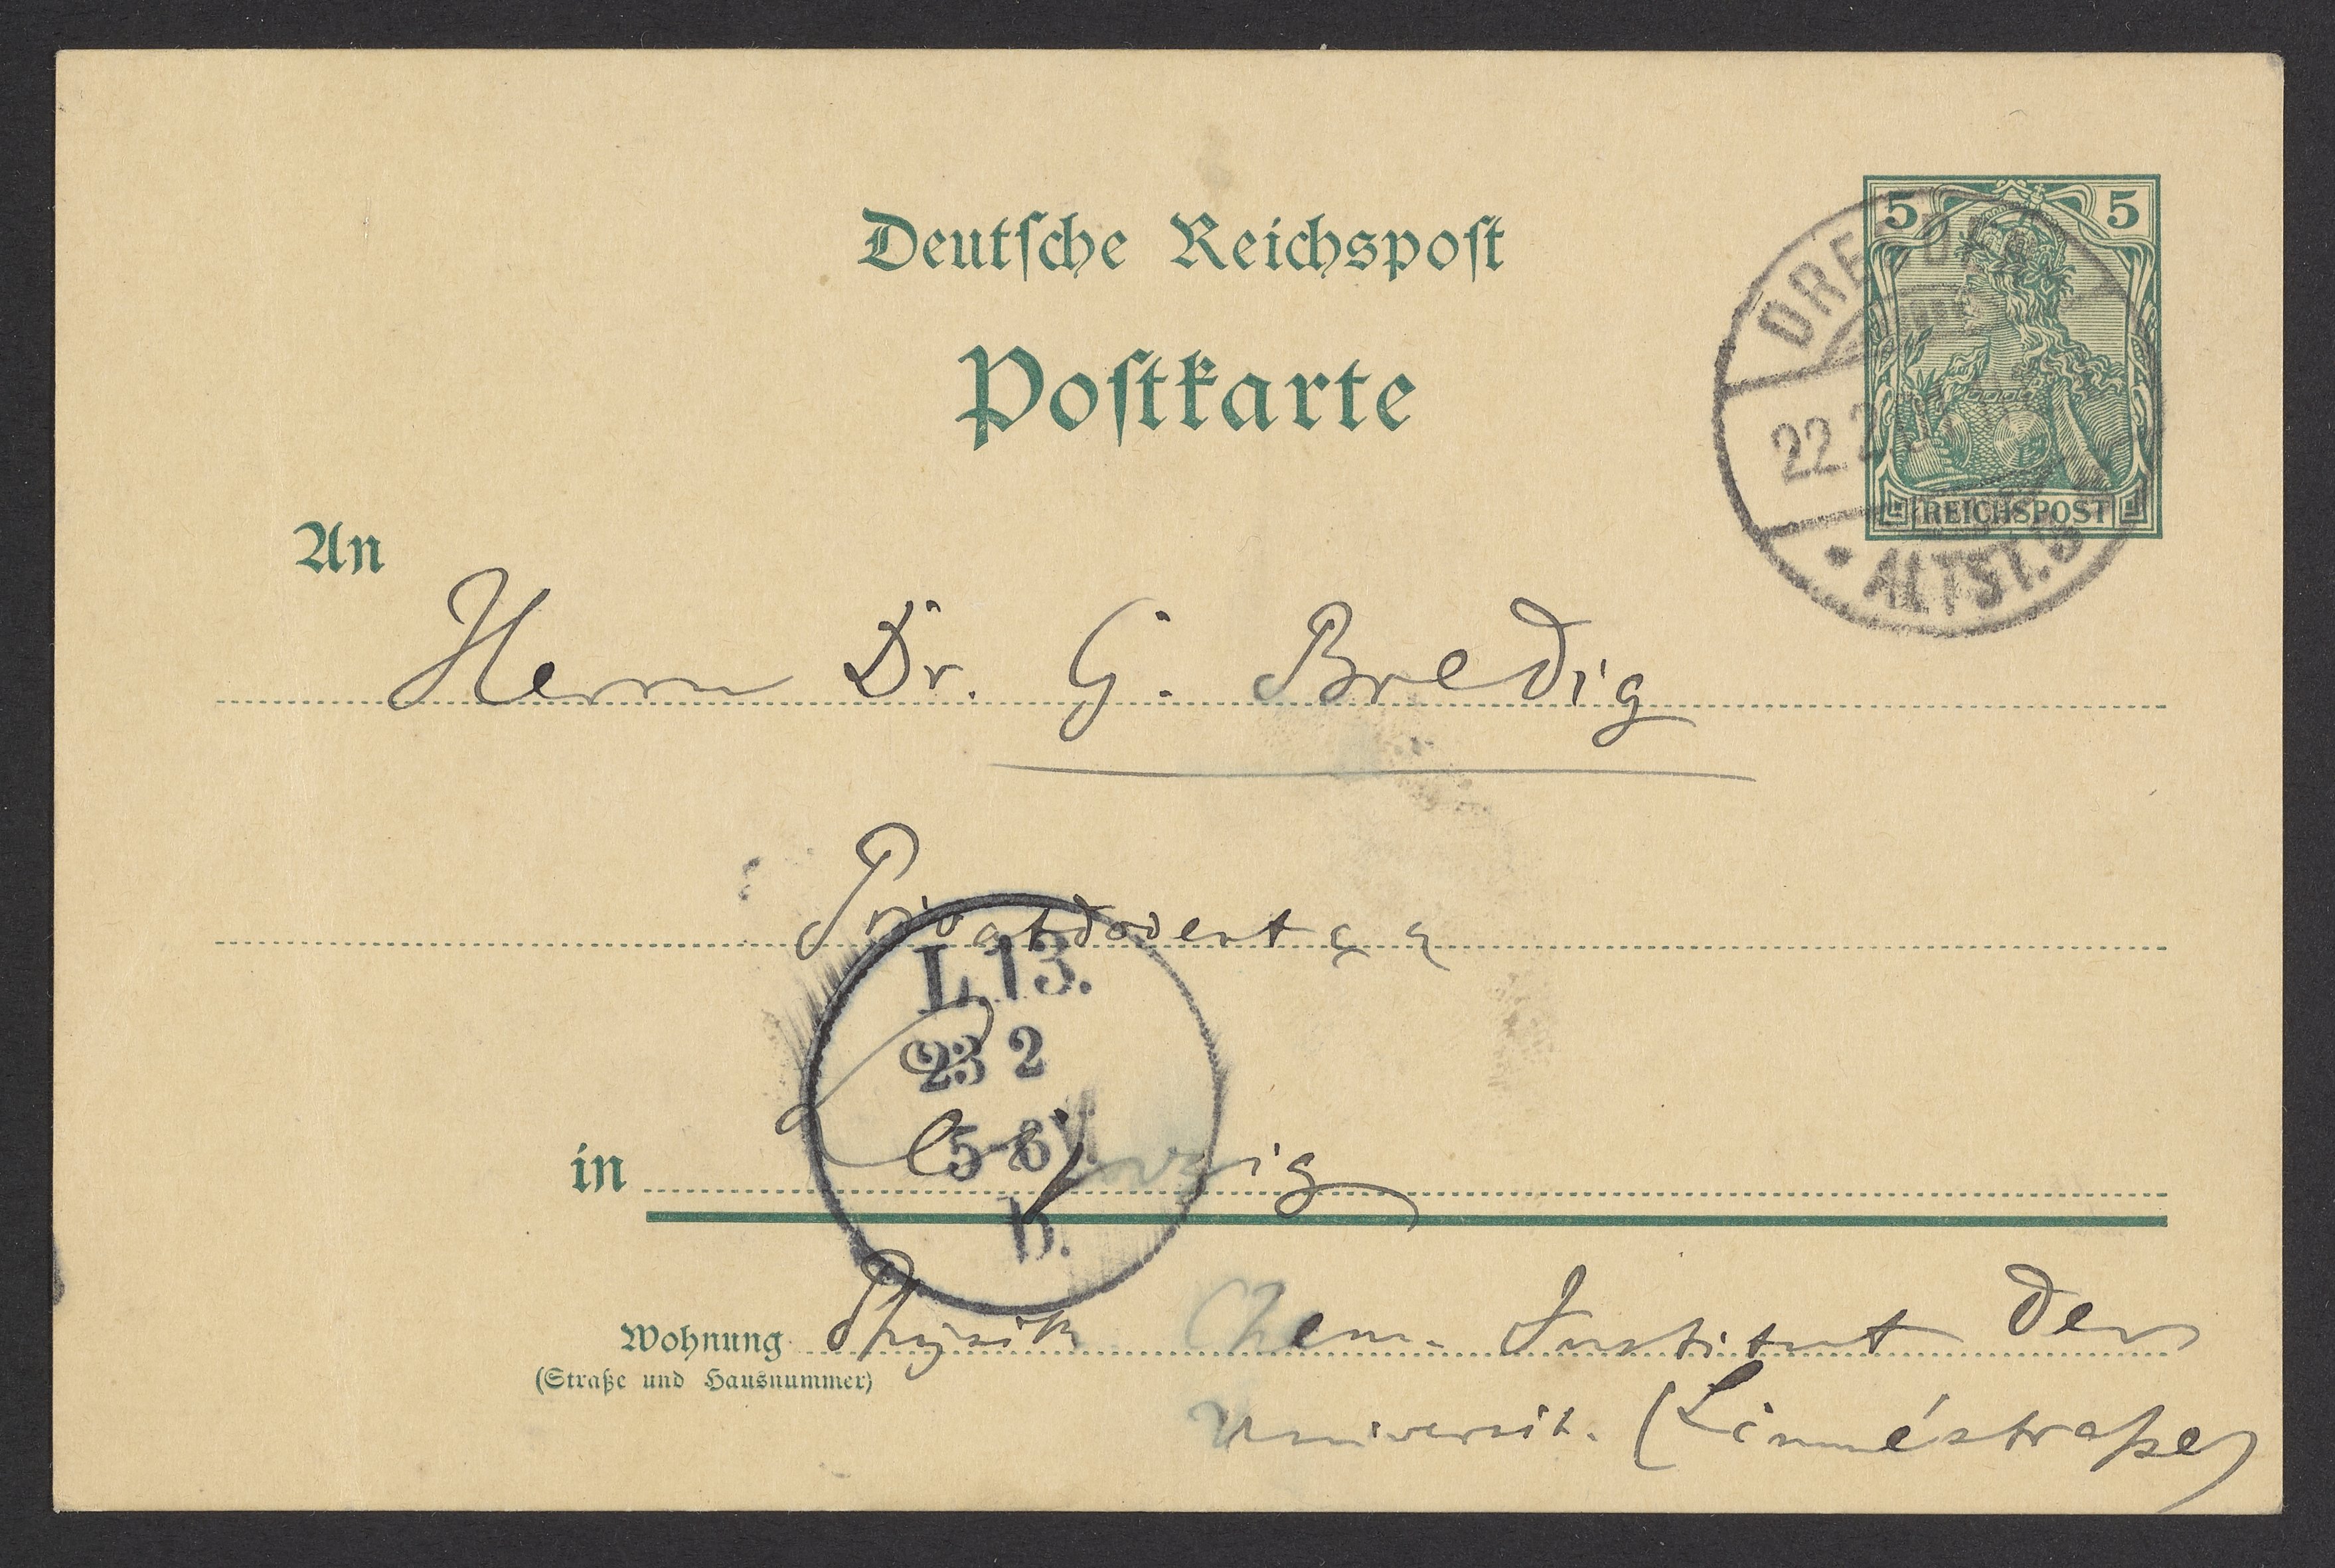 Deutsche Reichspost
Postkarte
5 5
REICHSPOST
DRESDEN
22 2
* ALTST. 9
An
Herrn Dr. G. Bredig
Privatdozent
L 13.
23 2
5-8 V.
B.
in Leipzig
Wohnung Physik Chem. Institut der
(Straße und Hausnummer)
Universit. (Linnéstraße)